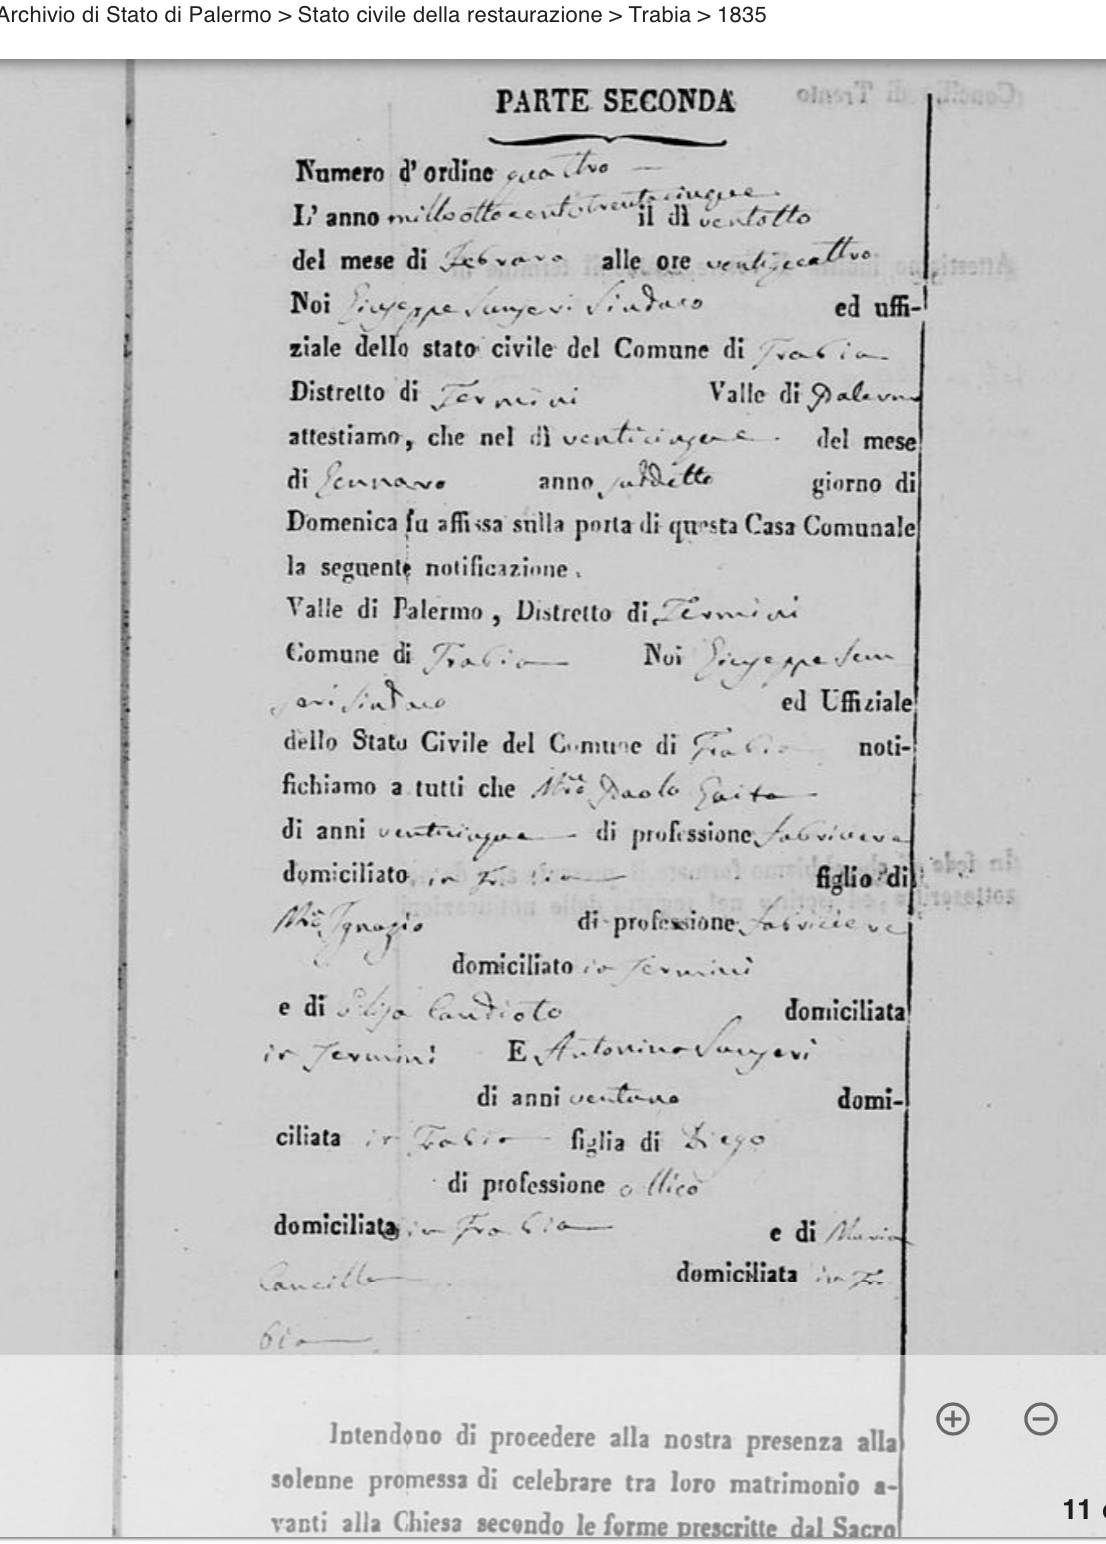 Archivio di Stato di Palermo > Stato civile della restaurazione > Trabia > 1835
PARTE SECONDA
Numero d' ordine quattro
L' anno milleottocentotrentacinque il dì ventotto
del mese di Febraro alle ore ventiquattro
Noi Giuseppe Sindaco ed uffi-
ziale dello stato civile del Comune di Trabia
Distretto di Termini Valle di Palermo
attestiamo, che nel dì venticinque del mese
di Gennaro anno suddetto giorno di
Domenica fu affissa sulla porta di questa Casa Comunale
la seguente notificazione.
Valle di Palermo, Distretto di Termini
Comune di Trabia Noi Giuseppe
Sindaco ed Uffiziale
dello Stato Civile del Comune di Trabia noti-
fichiamo a tutti che Mro Paolo
di anni venticinque di professione
domiciliato in Trabia figlio di
Mro Ignazio di professione
domiciliato in Termini
e di Candioto domiciliata
in Termini E Antonina
di anni ventuno domi-
ciliata in Trabia figlia di Diego
di professione
domiciliata in Trabia e di Maria
Cancilla domiciliata in Tra
bia
Intendono di procedere alla nostra presenza alla
solenne promessa di celebrare tra loro matrimonio a-
vanti alla Chiesa secondo le forme prescritte dal Sacro
11